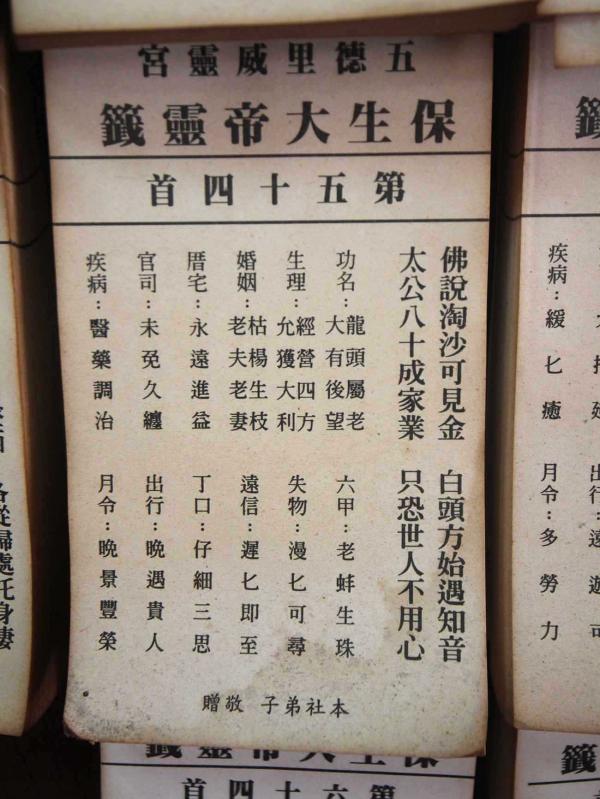 五德里威靈宮
保生大帝靈籤
第五十四首
佛說淘沙可見金 白頭方始遇知音
太公八十成家業 只恐世人不用心
功名：龍頭屬老
大有後望
六甲：老蚌生珠
生理：經營四方
允獲大利
失物：漫匕可尋
婚姻：枯楊生枝
老夫老妻
遠信：遲匕即至
厝宅：永遠進益
丁口：仔細三思
官司：未免久纏
出行：晚遇貴人
疾病：醫藥調治
月令：晚景豐榮
本社弟子 敬贈
籤
疾病：緩匕癒
月令：多勞力
出行：遠遊可
各從歸處託身棲
保生大帝靈籤
第六十四首
籤